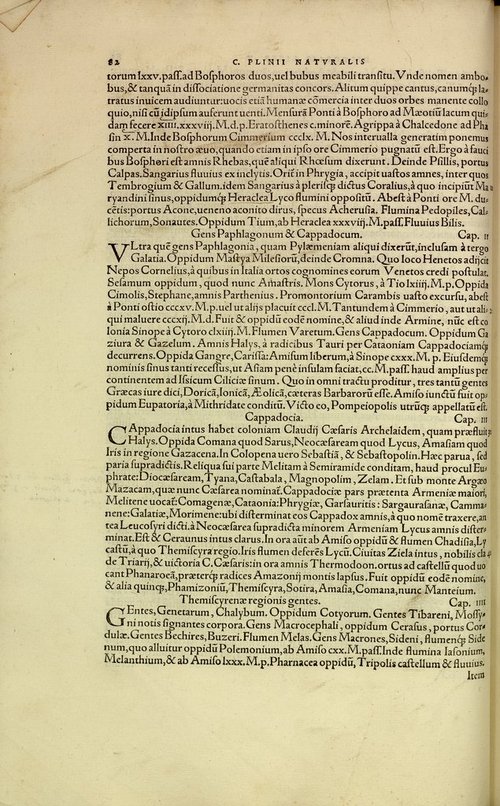 82 C. PLINII NATVRALIS
torum lxxv. pass. ad Bosphoros duos, uel bubus meabili transitu. Vnde nomen ambo⸗
bus, & tanquā in dissociatione germanitas concors. Alitum quippe cantus, canumq́ la⸗
tratus inuicem audiuntur: uocis etiā humanæ cōmercia inter duos orbes manente collo
quio, nisi cū idipsum auferunt uenti. Mensurā Ponti à Bosphoro ad Mæotiū lacum qui
dam fecere xiiii. xxxviij. M. d. p. Eratosthenes c. minorē. Agrippa à Chalcedone ad Pha
sin x̄. M. Inde Bosphorum Cimmerium ccclx. M. Nos interualla generatim ponemus
comperta in nostro æuo, quando etiam in ipso ore Cimmerio pugnatū est. Ergo à fauci
bus Bosphori est amnis Rhebas, quē aliqui Rhœsum dixerunt. Deinde Psillis, portus
Calpas. Sangarius fluuius ex inclytis. Orit̄ in Phrygia, accipit uastos amnes, inter quos
Tembrogium & Gallum. idem Sangarius à plerisq́ dictus Coralius, à quo incipiūt Ma
ryandini sinus, oppidumq́ Heraclea Lyco flumini oppositū. Abest à Ponti ore M. du⸗
cētis: portus Acone, ueneno aconito dirus, specus Acherusia. Flumina Pedopiles, Cal
lichorum, Sonautes. Oppidum Tium, ab Heraclea xxxviij. M. pass. Fluuius Bilis.
Gens Paphlagonum & Cappadocum. Cap. ii
VLtra quē gens Paphlagonia, quam Pylæmeniam aliqui dixerūt, inclusam à tergo
Galatia. Oppidum Mastya Milesiorū, deinde Cromna. Quo loco Henetos adijcit
Nepos Cornelius, à quibus in Italia ortos cognomines eorum Venetos credi postulat.
Sesamum oppidum, quod nunc Amastris. Mons Cytorus, à Tio lxiiij. M. p. Oppida
Cimolis, Stephane, amnis Parthenius. Promontorium Carambis uasto excursu, abest
à Ponti ostio cccxxv. M. p. uel ut alijs placuit cccl. M. Tantundem à Cimmerio, aut ut ali⸗
qui maluere cccxij. M. d. Fuit & oppidū eodē nomine, & aliud inde Armine, nūc est co
lonia Sinope à Cytoro clxiiij. M. Flumen Varetum. Gens Cappadocum. Oppidum Ga
ziura & Gazelum. Amnis Halys, à radicibus Tauri per Cataoniam Cappadociamq́
decurrens. Oppida Gangre, Carissa: Amisum liberum, à Sinope cxxx. M. p. Eiusdemq́
nominis sinus tanti recessus, ut Asiam penè insulam faciat, cc. M. pass. haud amplius per
continentem ad Issicum Ciliciæ sinum. Quo in omni tractu proditur, tres tantū gentes
Græcas iure dici, Doricā, Ionicā, Æolicā, cæteras Barbarorū esse. Amiso iunctū fuit op⸗
pidum Eupatoria, à Mithridate conditū. Victo eo, Pompeiopolis utrūq́ appellatū est.
Cappadocia. Cap. iii
CAppadocia intus habet coloniam Claudij Cæsaris Archelaidem, quam præfluit
Halys. Oppida Comana quod Sarus, Neocæsaream quod Lycus, Amasiam quod
Iris in regione Gazacena. In Colopena uero Sebastiā, & Sebastopolin. Hæc parua, sed
paria supradictis. Reliqua sui parte Melitam à Semiramide conditam, haud procul Eu⸗
phrate: Diocæsaream, Tyana, Castabala, Magnopolim, Zelam. Et sub monte Argæo
Mazacam, quæ nunc Cæsarea nominat̄. Cappadociæ pars prætenta Armeniæ maiori,
Melitene uocat̄: Comagenæ, Cataonia: Phrygiæ, Garsauritis: Sargaurasanæ, Camma⸗
nene: Galatiæ, Morimene: ubi disterminat eos Cappadox amnis, à quo nomē traxere, an
tea Leucosyri dicti. à Neocæsarea supradicta minorem Armeniam Lycus amnis dister⸗
minat. Est & Ceraunus intus clarus. In ora aūt ab Amiso oppidū & flumen Chadisia, Ly
castū, à quo Themiscyra regio. Iris flumen deferēs Lycū. Ciuitas Ziela intus, nobilis cla
de Triarij, & uictoria C. Cæsaris: in ora amnis Thermodoon. ortus ad castellū quod uo
cant Phanaroeā, præterq́ radices Amazonij montis lapsus. Fuit oppidū eodē nomine,
& alia quinq́, Phamizoniū, Themiscyra, Sotira, Amasia, Comana, nunc Manteium.
Themiscyrenæ regionis gentes. Cap. iiii
GEntes, Genetarum, Chalybum. Oppidum Cotyorum. Gentes Tibareni, Mossy⸗
ni notis signantes corpora. Gens Macrocephali, oppidum Cerasus, portus Cor⸗
dulæ. Gentes Bechires, Buzeri. Flumen Melas. Gens Macrones, Sideni, flumenq́ Side
num, quo alluitur oppidū Polemonium, ab Amiso cxx. M. pass. Inde flumina Iasonium,
Melanthium, & ab Amiso lxxx. M. p. Pharnacea oppidū, Tripolis castellum & fluuius.
Item